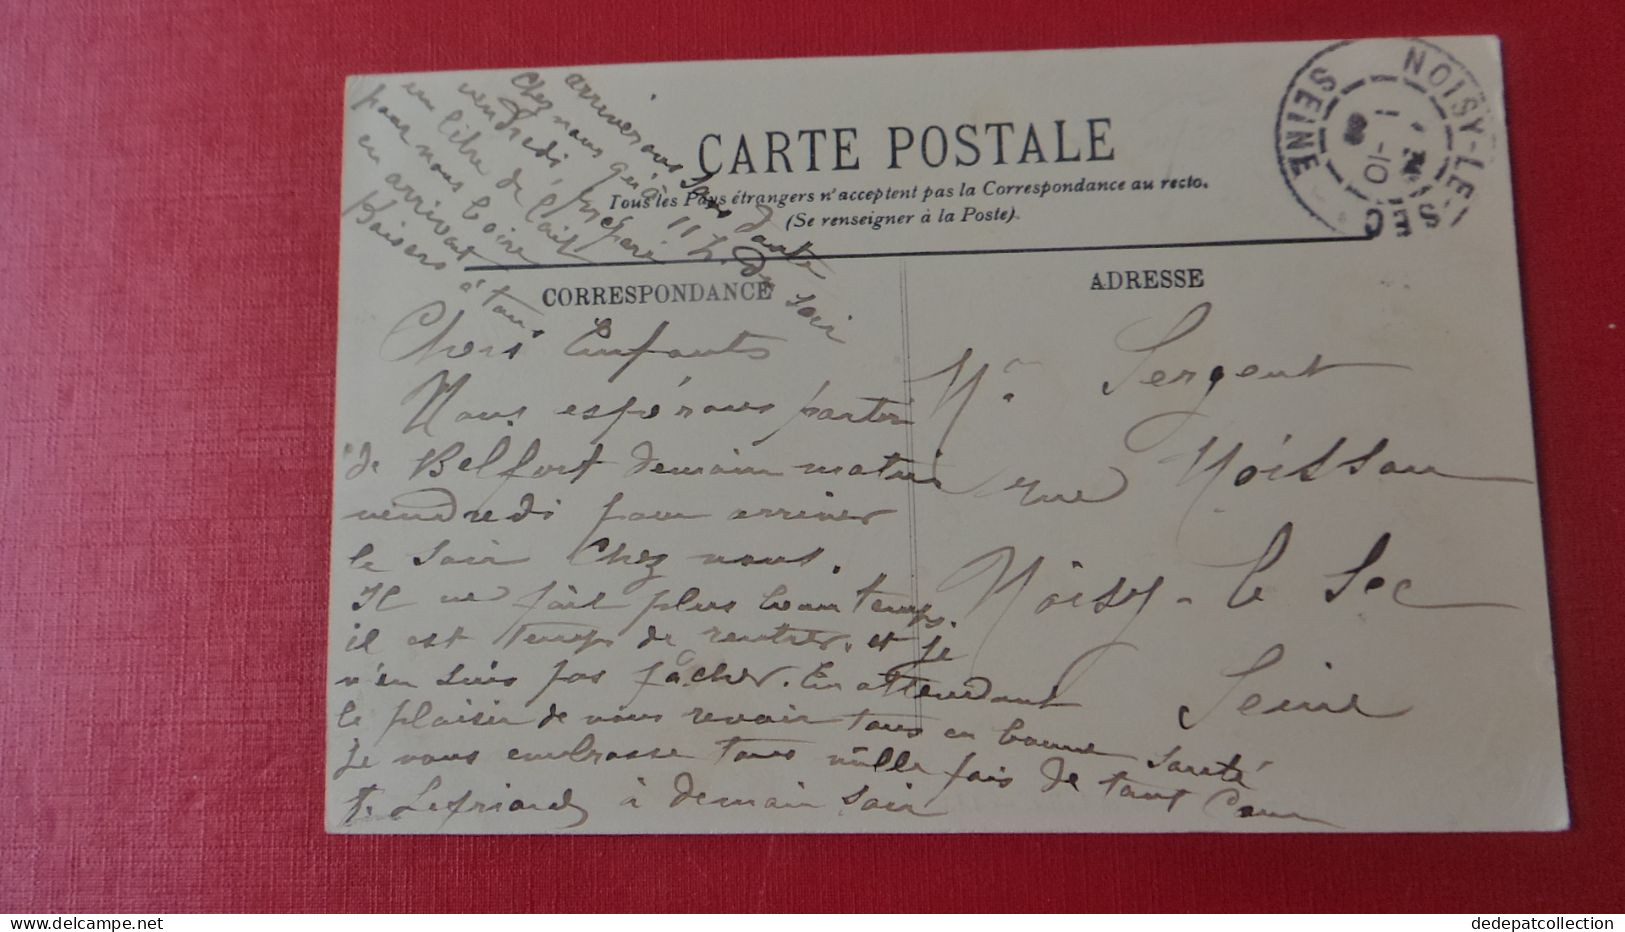 CARTE POSTALE
Tous les Pays étrangers n'acceptent pas la Correspondance au recto.
(Se renseigner à la Poste).
NOISY-LE-SEC
SEINE
1-10
CORRESPONDANCE
ADRESSE
Chers Enfants
Nous espérons partir
de Belfort demain matin
vendredi pour arriver
le soir chez nous.
Il ne fait plus beau temps.
il est temps de rentrer. et je
n'en suis pas fâcher. En attendant
le plaisir de vous revoir tous en bonne santé
Je vous embrasse tous mille fois de tout Cœur
à demain soir
arriverons sans doute
chez nous qu'à 11 h. du soir
vendredi,
un litre de lait
pour nous boire
en arrivant
Baisers à tous
Mr Sergent
rue Moissan
Noisy-le Sec
Seine
dedepatcollection